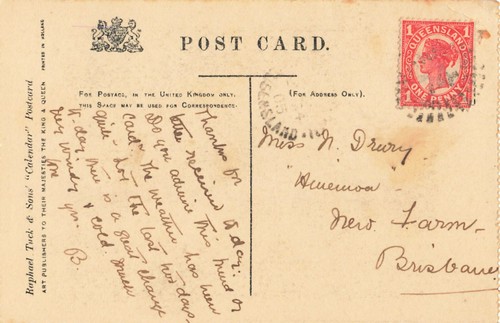 POST CARD.
FOR POSTAGE, IN THE UNITED KINGDOM ONLY,
THIS SPACE MAY BE USED FOR CORRESPONDENCE.
(FOR ADDRESS ONLY).
Raphael Tuck & Sons' "Calendar" Postcard
ART PUBLISHERS TO THEIR MAJESTIES THE KING & QUEEN
PRINTED IN
1 QUEENSLAND 1
1 ONE PENNY 1
QUEENSLAND
Thanks for
received today.
Do you admire this kind of
card. The weather has been
quite hot the last two days,
to-day there is a great change
very windy & cold. Much
B.
Miss N. Drury
New Farm
Brisbane